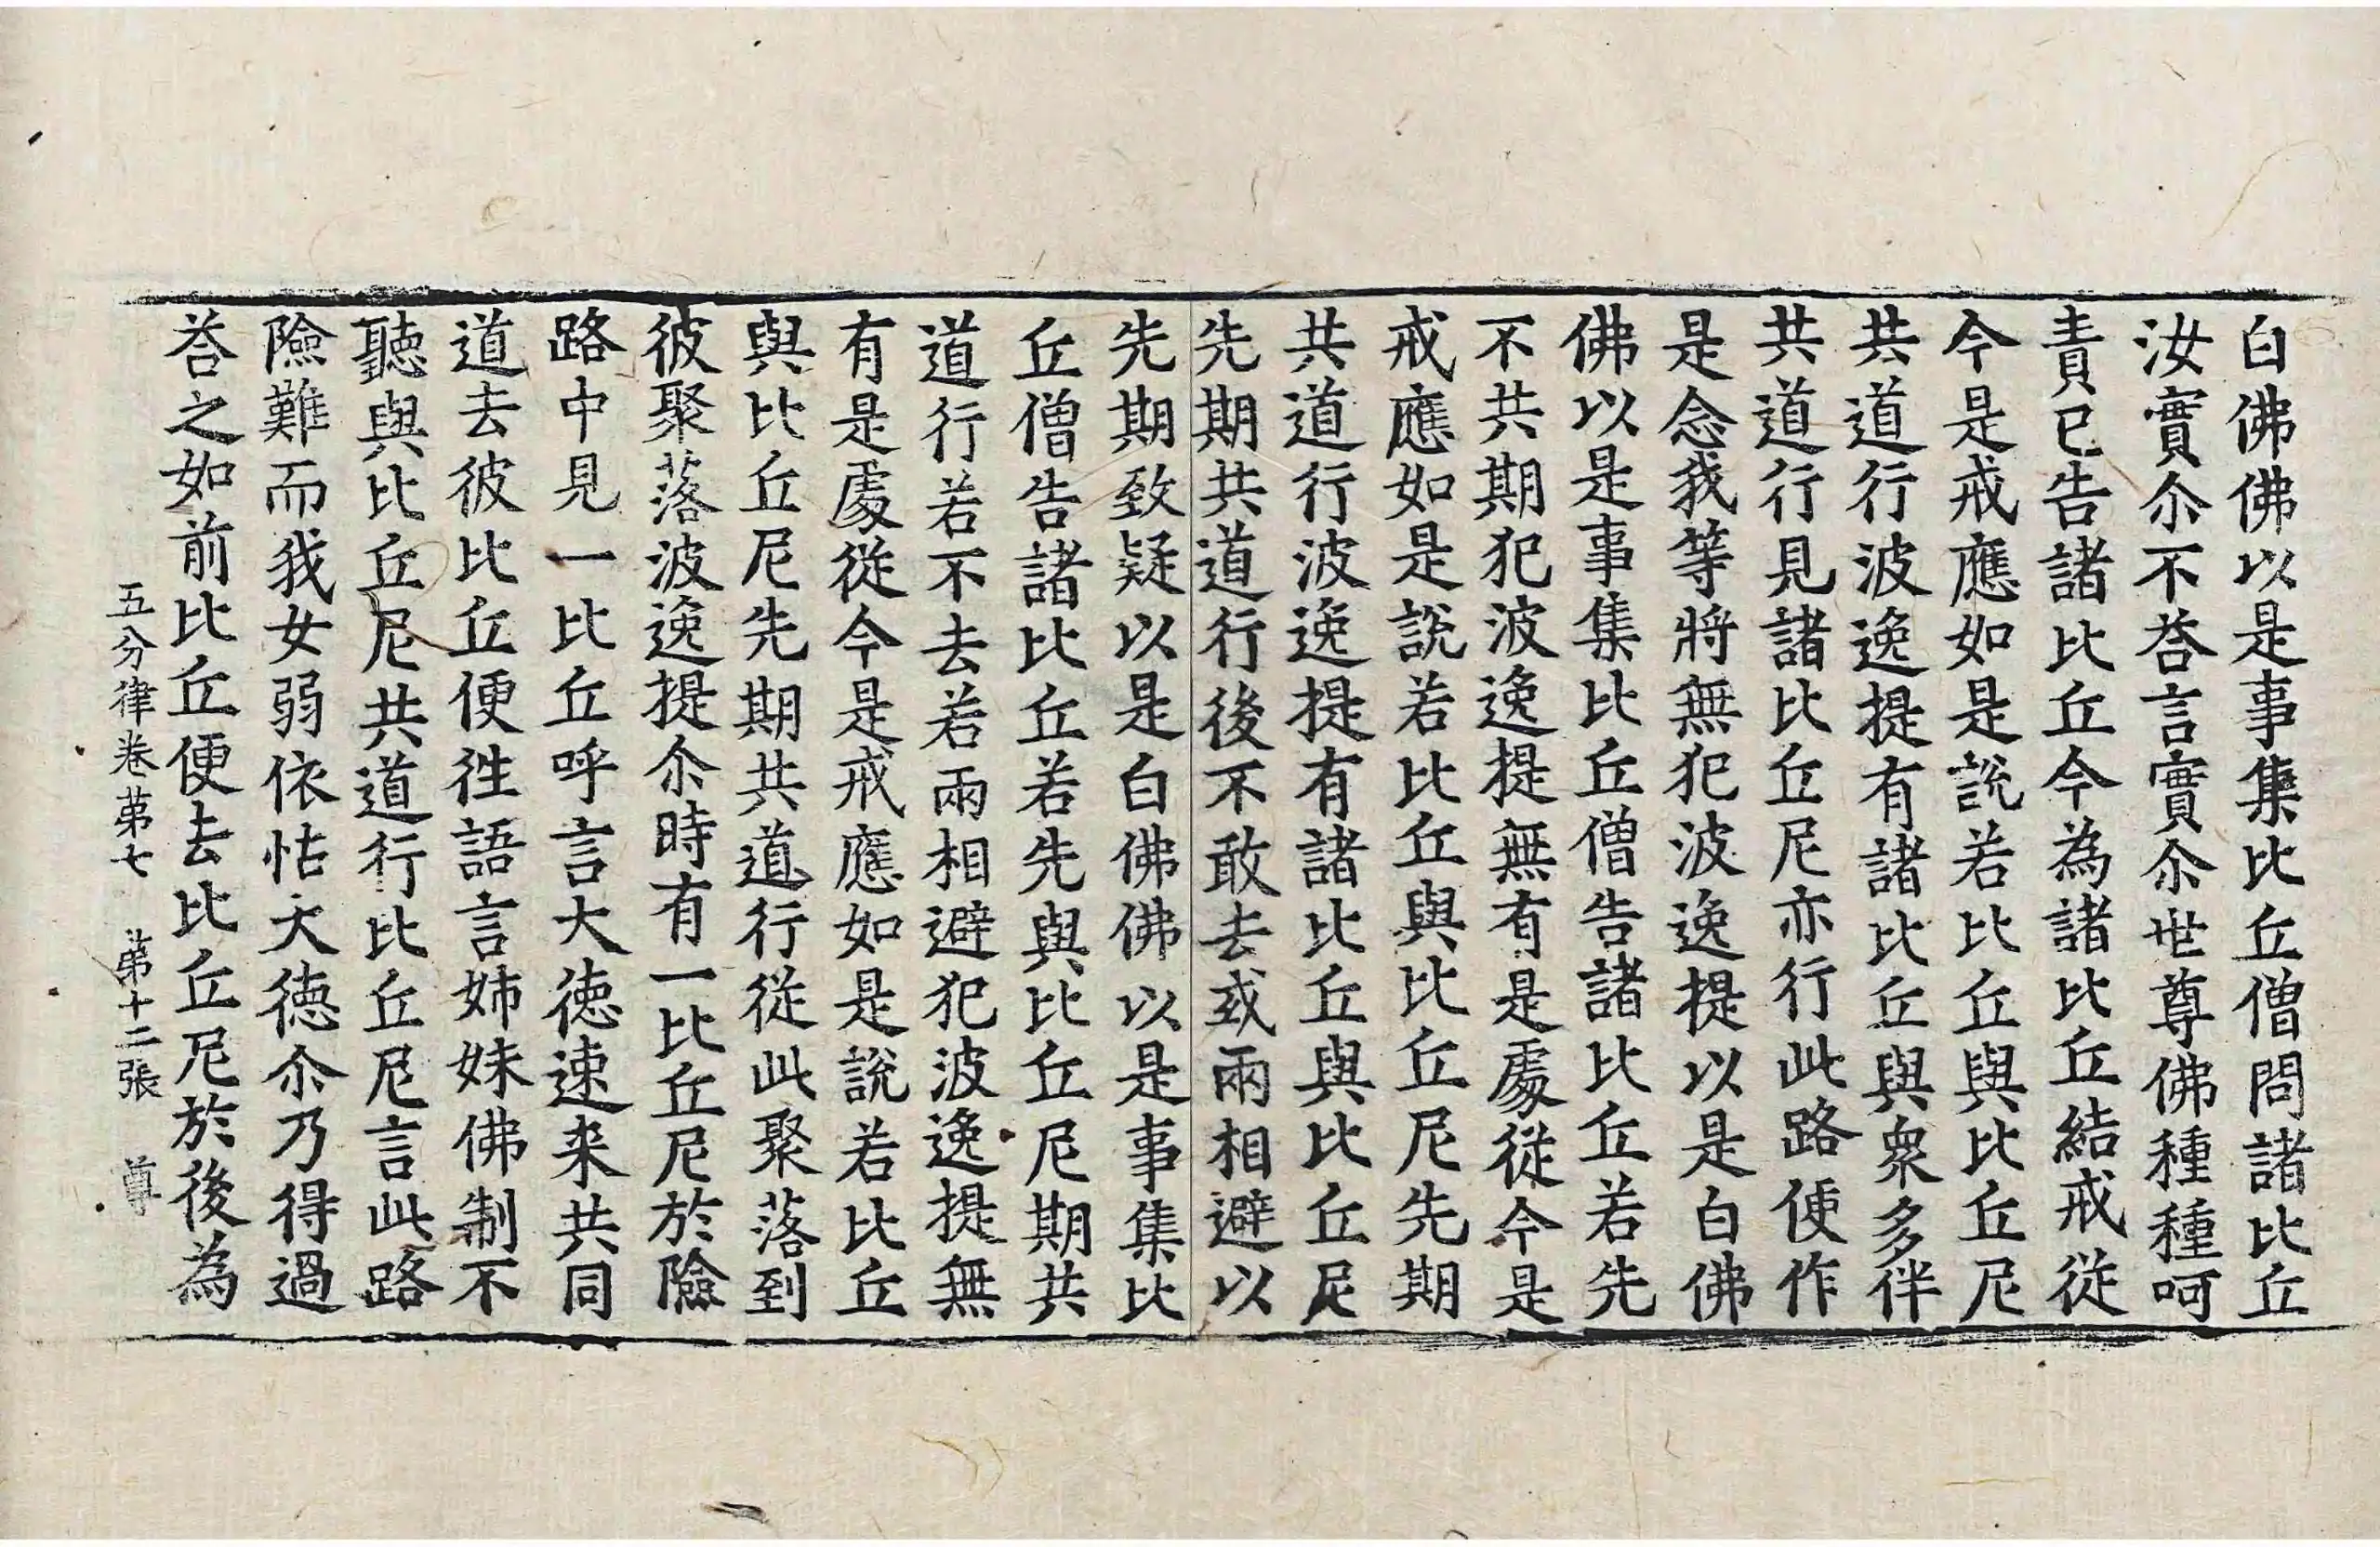 白佛佛以是事集比丘僧問諸比丘
汝實尒不荅言實尒世尊佛種種呵
責已告諸比丘今為諸比丘結戒從
今是戒應如是說若比丘與比丘尼
共道行波逸提有諸比丘與衆多伴
共道行見諸比丘尼亦行此路便作
是念我等將無犯波逸提以是白佛
佛以是事集比丘僧告諸比丘若先
不共期犯波逸提無有是處從今是
戒應如是說若比丘與比丘尼先期
共道行波逸提有諸比丘與比丘尼
先期共道行後不敢去或兩相避以
先期致疑以是白佛佛以是事集比
丘僧告諸比丘若先與比丘尼期共
道行若不去若兩相避犯波逸提無
有是處從今是戒應如是說若比丘
與比丘尼先期共道行從此聚落到
彼聚落波逸提尒時有一比丘尼於險
路中見一比丘呼言大徳速来共同
道去彼比丘便徃語言姉妹佛制不
聽與比丘尼共道行比丘尼言此路
險難而我女弱依怙大徳尒乃得過
荅之如前比丘便去比丘尼於後為
五分律卷苐七 苐十二張 尊